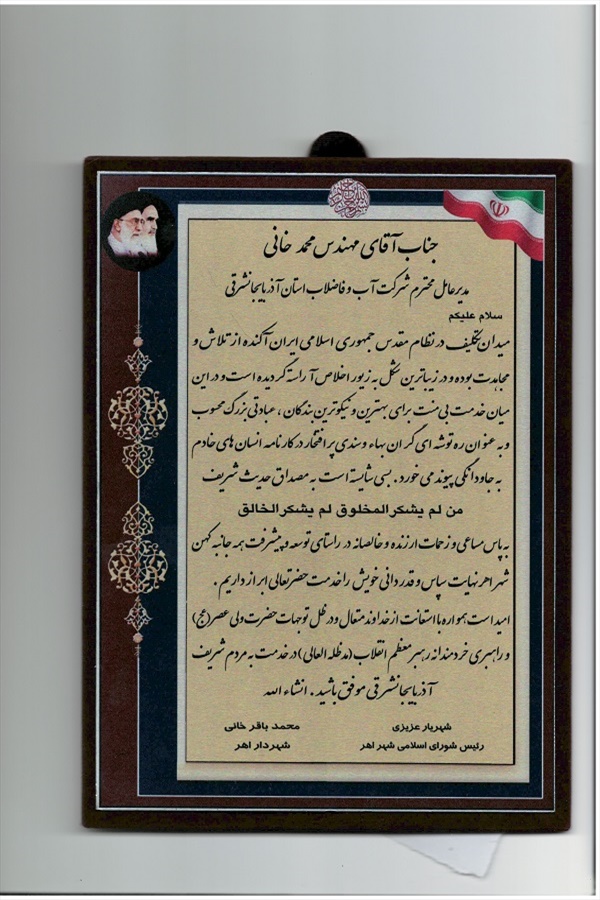 جناب آقای مهندس محمد خانی
مدیرعامل محترم شرکت آب و فاضلاب استان آذربایجانشرقی
سلام علیکم
میدان تکلیف در نظام مقدس جمهوری اسلامی ایران آکنده از تلاش و
مجاهدت بوده و در زیباترین شکل به زیور اخلاص آراسته گردیده است و در این
میان خدمت بی منت برای بهترین و نیکوترین بندگان ، عبادتی بزرگ محسوب
و به عنوان ره توشه ای گران بهاء و سندی پر افتخار در کارنامه انسان های خادم
به جاودانگی پیوند می خورد . بسی شایسته است به مصداق حدیث شریف
من لم یشکر المخلوق لم یشکر الخالق
به پاس مساعی و زحمات ارزنده و خالصانه در راستای توسعه و پیشرفت همه جانبه کهن
شهر اهر نهایت سپاس و قدردانی خویش را خدمت حضرتعالی ابراز داریم .
امید است همواره با استعانت از خداوند متعال و در ظل توجهات حضرت ولی عصر (عج)
و راهبری خردمندانه رهبر معظم انقلاب (مدظله العالی) در خدمت به مردم شریف
آذربایجانشرقی موفق باشید . انشاء الله
شهریار عزیزی
رئیس شورای اسلامی شهر اهر
محمد باقر خانی
شهردار اهر